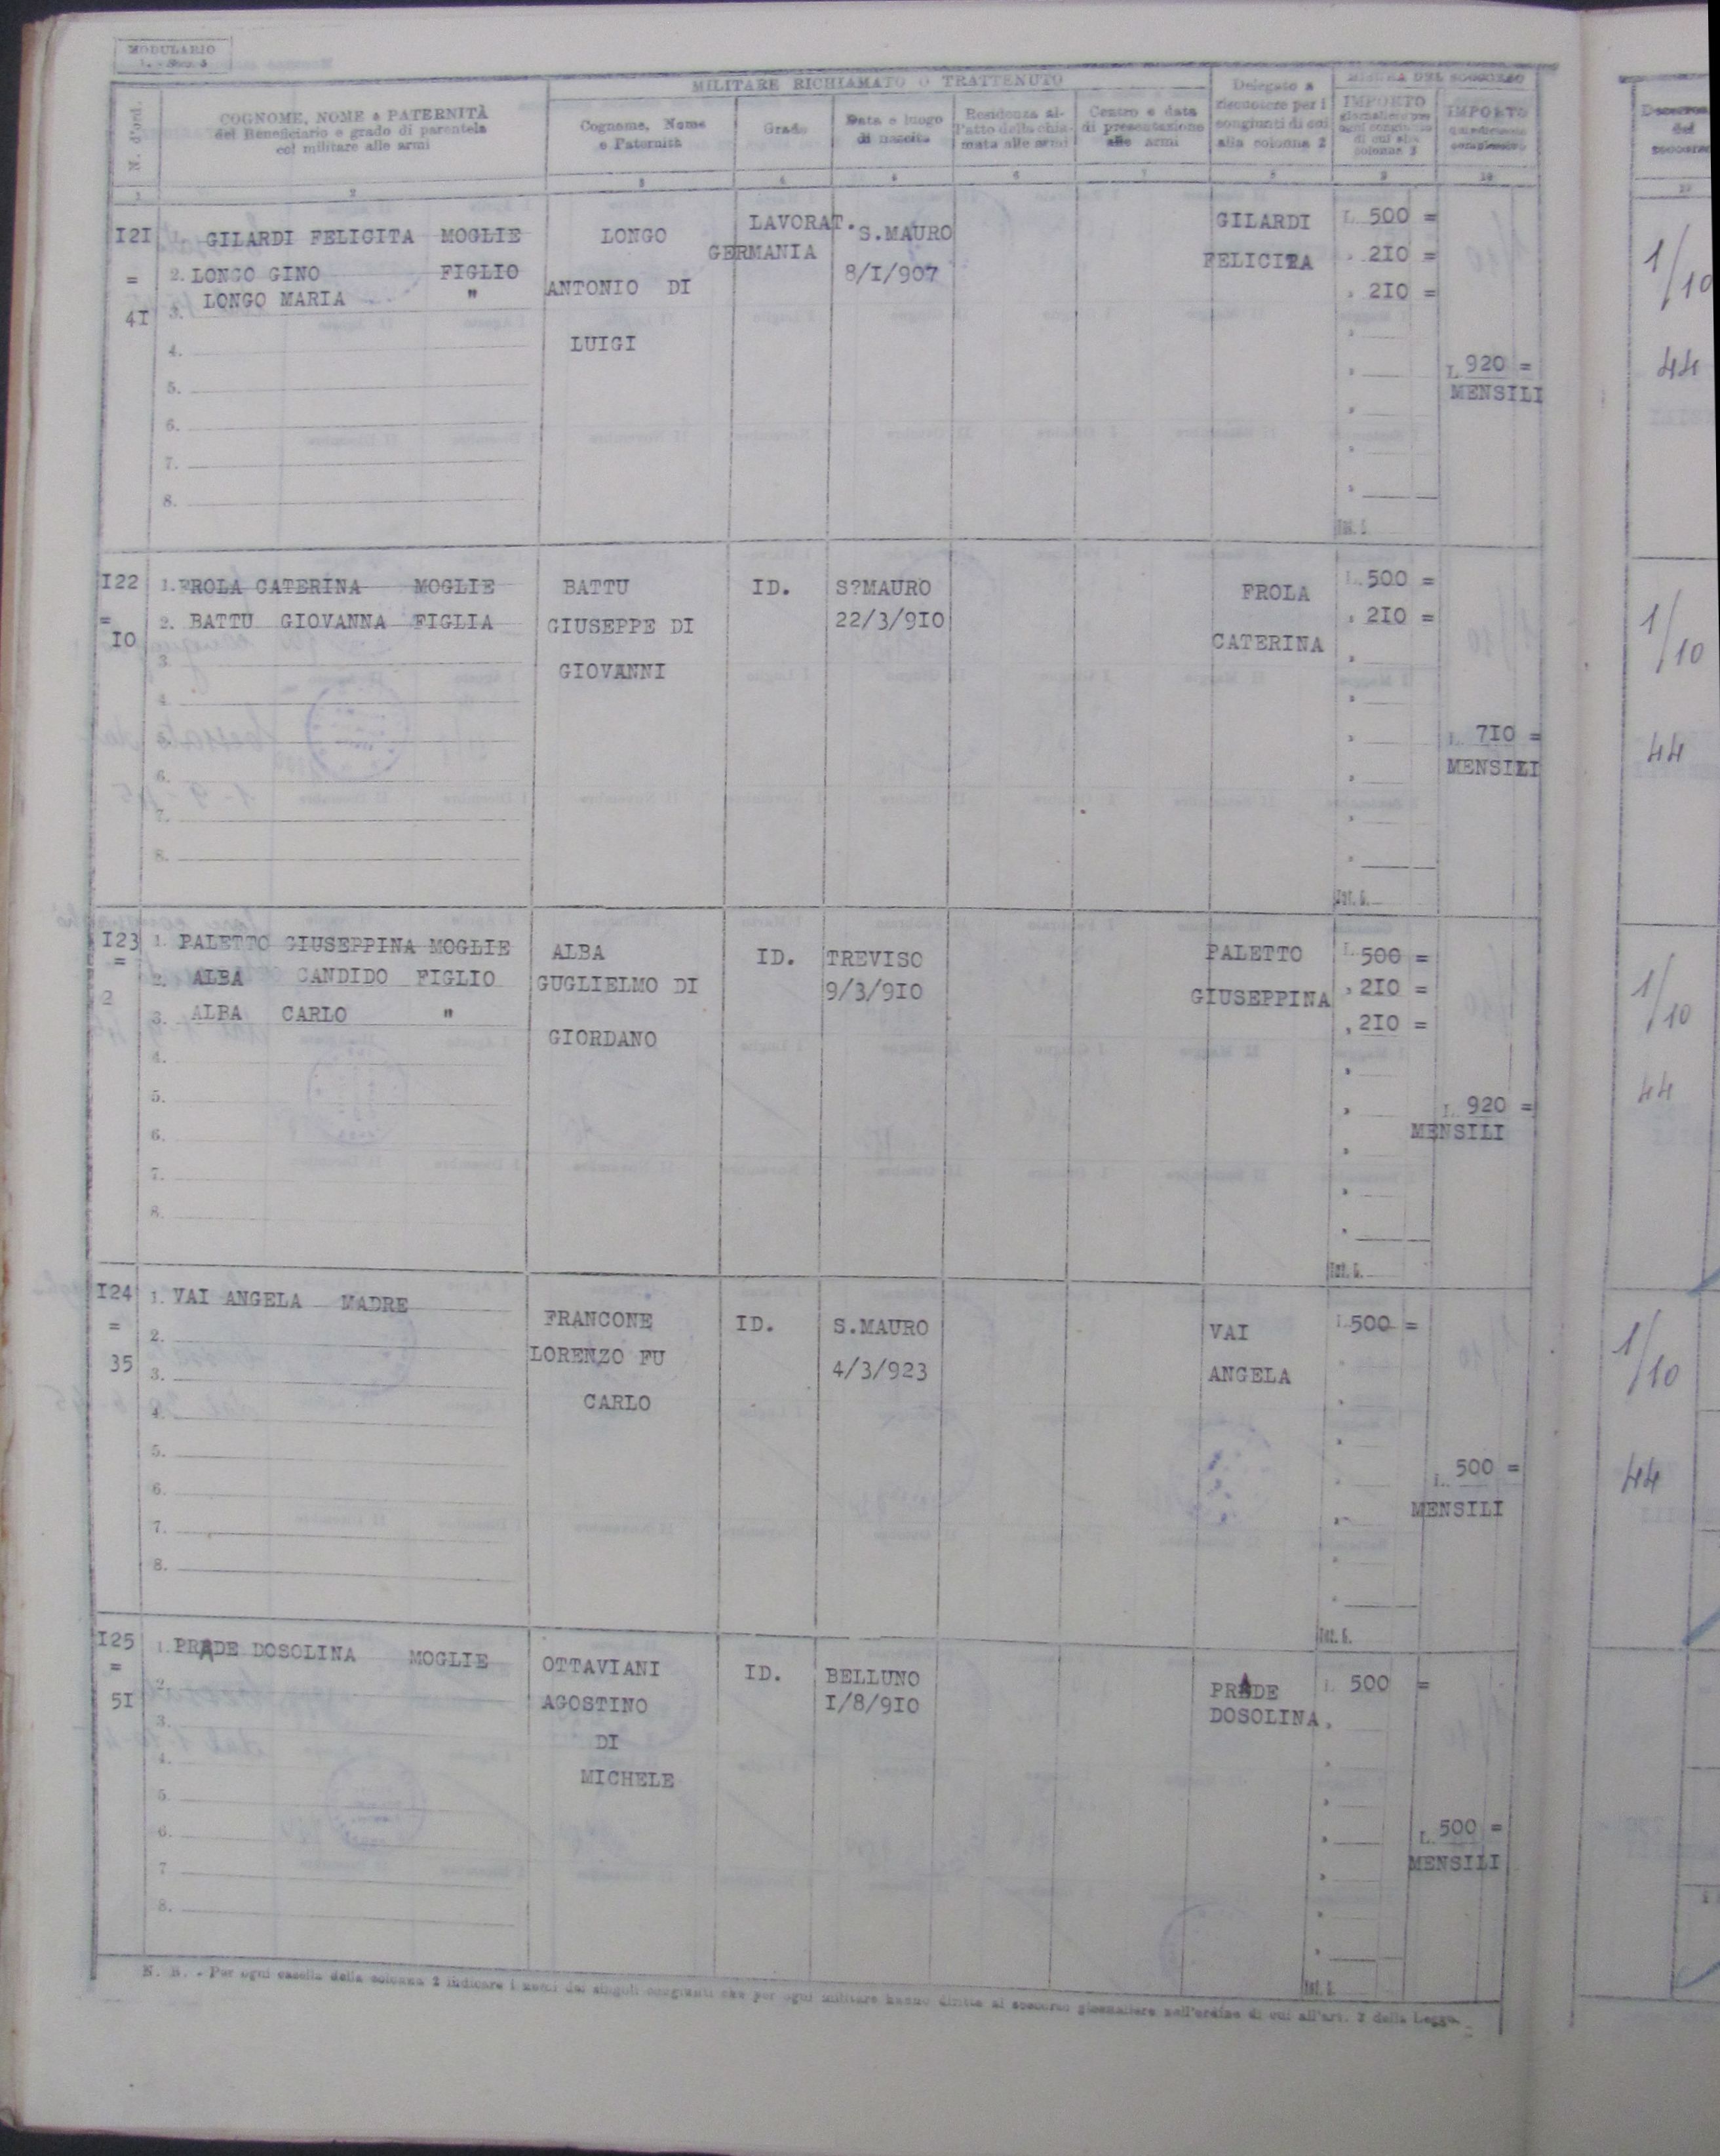 MODULARIO
MILITARE RICHIAMATO O TRATTENUTO
MISURA DEL SOCCORSO
N. d'ord.
COGNOME, NOME e PATERNITÀ
del Beneficiario e grado di parentela
col militare alle armi
Cognome, Nome
e Paternità
Grado
Data e luogo
di nascita
Residenza al-
l'atto della chia-
mata alle armi
Centro e data
di presentazione
alle armi
Delegato a
riscuotere per i
congiunti di cui
alla colonna 2
IMPORTO
giornaliero per
ogni congiunto
di cui alla
colonna 2
IMPORTO
complessivo
1 2 3 4 5 6 7 8 9 10
I2I
=
4I
GILARDI FELIGITA MOGLIE
2. LONGO GINO FIGLIO
3. LONGO MARIA "
4.
5.
6.
7.
8.
LONGO
ANTONIO DI
LUIGI
LAVORAT.
GERMANIA
S.MAURO
8/I/907
GILARDI
FELICITA
L. 500 =
" 2I0 =
" 2I0 =
Tot. L.
L. 920 =
MENSILI
1/10
44
I22
=
I0
1. FROLA CATERINA MOGLIE
2. BATTU GIOVANNA FIGLIA
3.
4.
5.
6.
7.
8.
BATTU
GIUSEPPE DI
GIOVANNI
ID.
S?MAURO
22/3/9I0
FROLA
CATERINA
L. 500 =
" 2I0 =
Tot. L.
L. 7I0 =
MENSILI
1/10
44
I23
=
2
1. PALETTO GIUSEPPINA MOGLIE
2. ALBA CANDIDO FIGLIO
3. ALBA CARLO "
4.
5.
6.
7.
8.
ALBA
GUGLIELMO DI
GIORDANO
ID.
TREVISO
9/3/9I0
PALETTO
GIUSEPPINA
L. 500 =
" 2I0 =
" 2I0 =
Tot. L.
L. 920 =
MENSILI
1/10
44
I24
=
35
1. VAI ANGELA MADRE
2.
3.
4.
5.
6.
7.
8.
FRANCONE
LORENZO FU
CARLO
ID.
S.MAURO
4/3/923
VAI
ANGELA
L. 500 =
Tot. L.
L. 500 =
MENSILI
1/10
44
I25
=
5I
1. PRADE DOSOLINA MOGLIE
2.
3.
4.
5.
6.
7
8.
OTTAVIANI
AGOSTINO
DI
MICHELE
ID.
BELLUNO
I/8/9I0
PRADE
DOSOLINA
L. 500 =
Tot. L.
L. 500 =
MENSILI
N. B. - Per ogni casella della colonna 2 indicare i nomi dei singoli congiunti che per ogni militare hanno diritto al soccorso giornaliero nell'ordine di cui all'art. 2 della Legge.